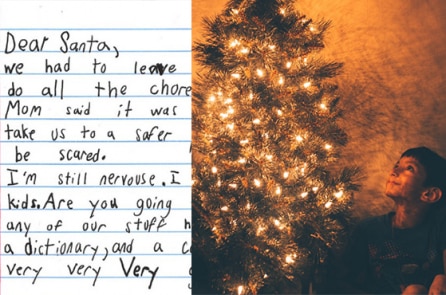 Dear Santa,
we had to leave
do all the chore
Mom said it was
take us to a safer
be scared.
I'm still nervouse. I
kids. Are you going
any of our stuff h
a dictionary, and a c
very very Very